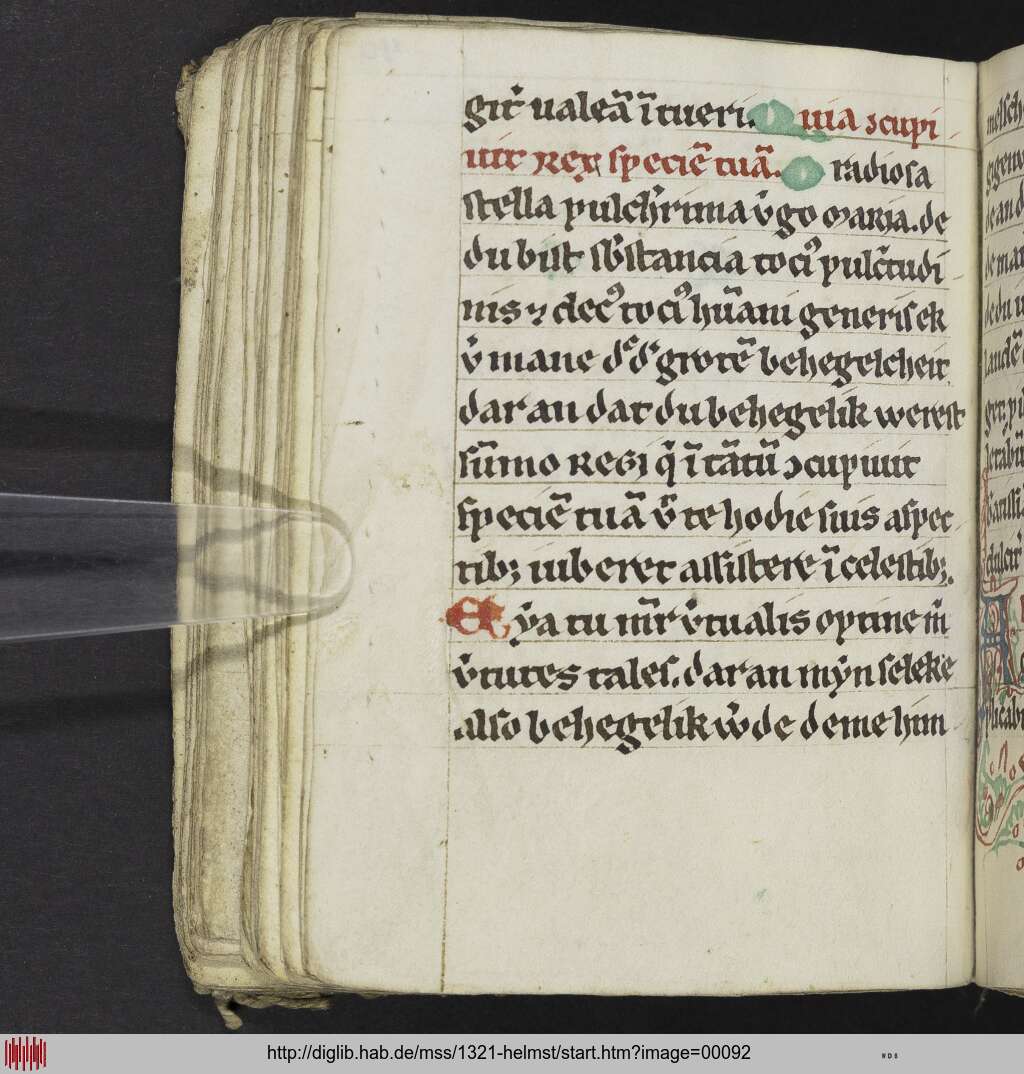 git᷑ ualeā ītueri. Quia ɔcupi
uit Rex speciē tuā. O radiosa
stella pulch᷑rima v᷑go maria. de
du bist sb᷑stancia toci⁹ pulc᷑tudi
nis ⁊ dec⁹ toci⁹ hūani generis ek
v᷑mane dͤ dͦ grotē behegelcheit
dar an dat du behegelik werest
sūmo regi q᷑ ī tātū ɔcupiuit
speciē tuā v᷑ te hodie suis aspec
tibꝫ iuberet assistere ī celestibꝫ.
Eẏa tu mr̄ v᷑tualis optine m᷑
v᷑tutes tales. dar an mẏn seleke
also behegelik w᷑de deme him
http://diglib.hab.de/mss/1321-helmst/start.htm?image=00092